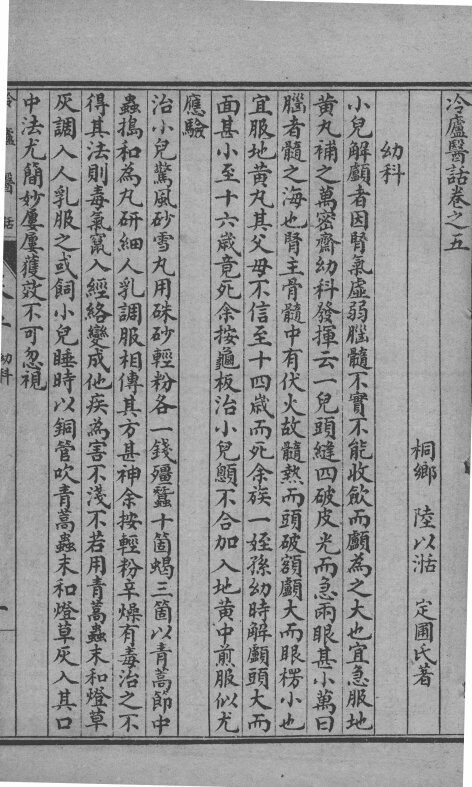 冷廬醫話卷之五
桐鄉 陸以湉 定圃氏著
幼科
小兒解顱者因腎氣虛弱腦髓不實不能收斂而顱為之大也宜急服地
黃丸補之萬密齋幼科發揮云一兒頭縫四破皮光而急兩眼甚小萬曰
腦者髓之海也腎主骨髓中有伏火故髓熱而頭破額顱大而眼楞小也
宜服地黃丸其父母不信至十四歲而死余族一姪孫幼時解顱頭大而
面甚小至十六歲竟死余按龜板治小兒顖不合加入地黃中煎服似尤
應驗
治小兒驚風砂雪丸用硃砂輕粉各一錢殭蠶十箇蝎三箇以青蒿節中
蟲搗和為丸研細人乳調服相傳其方甚神余按輕粉辛燥有毒治之不
得其法則毒氣竄入經絡變成他疾為害不淺不若用青蒿蟲末和燈草
灰調入人乳服之或飼小兒睡時以銅管吹青蒿蟲末和燈草灰入其口
中法尤簡妙屢屢獲效不可忽視
冷廬醫話
幼科
一